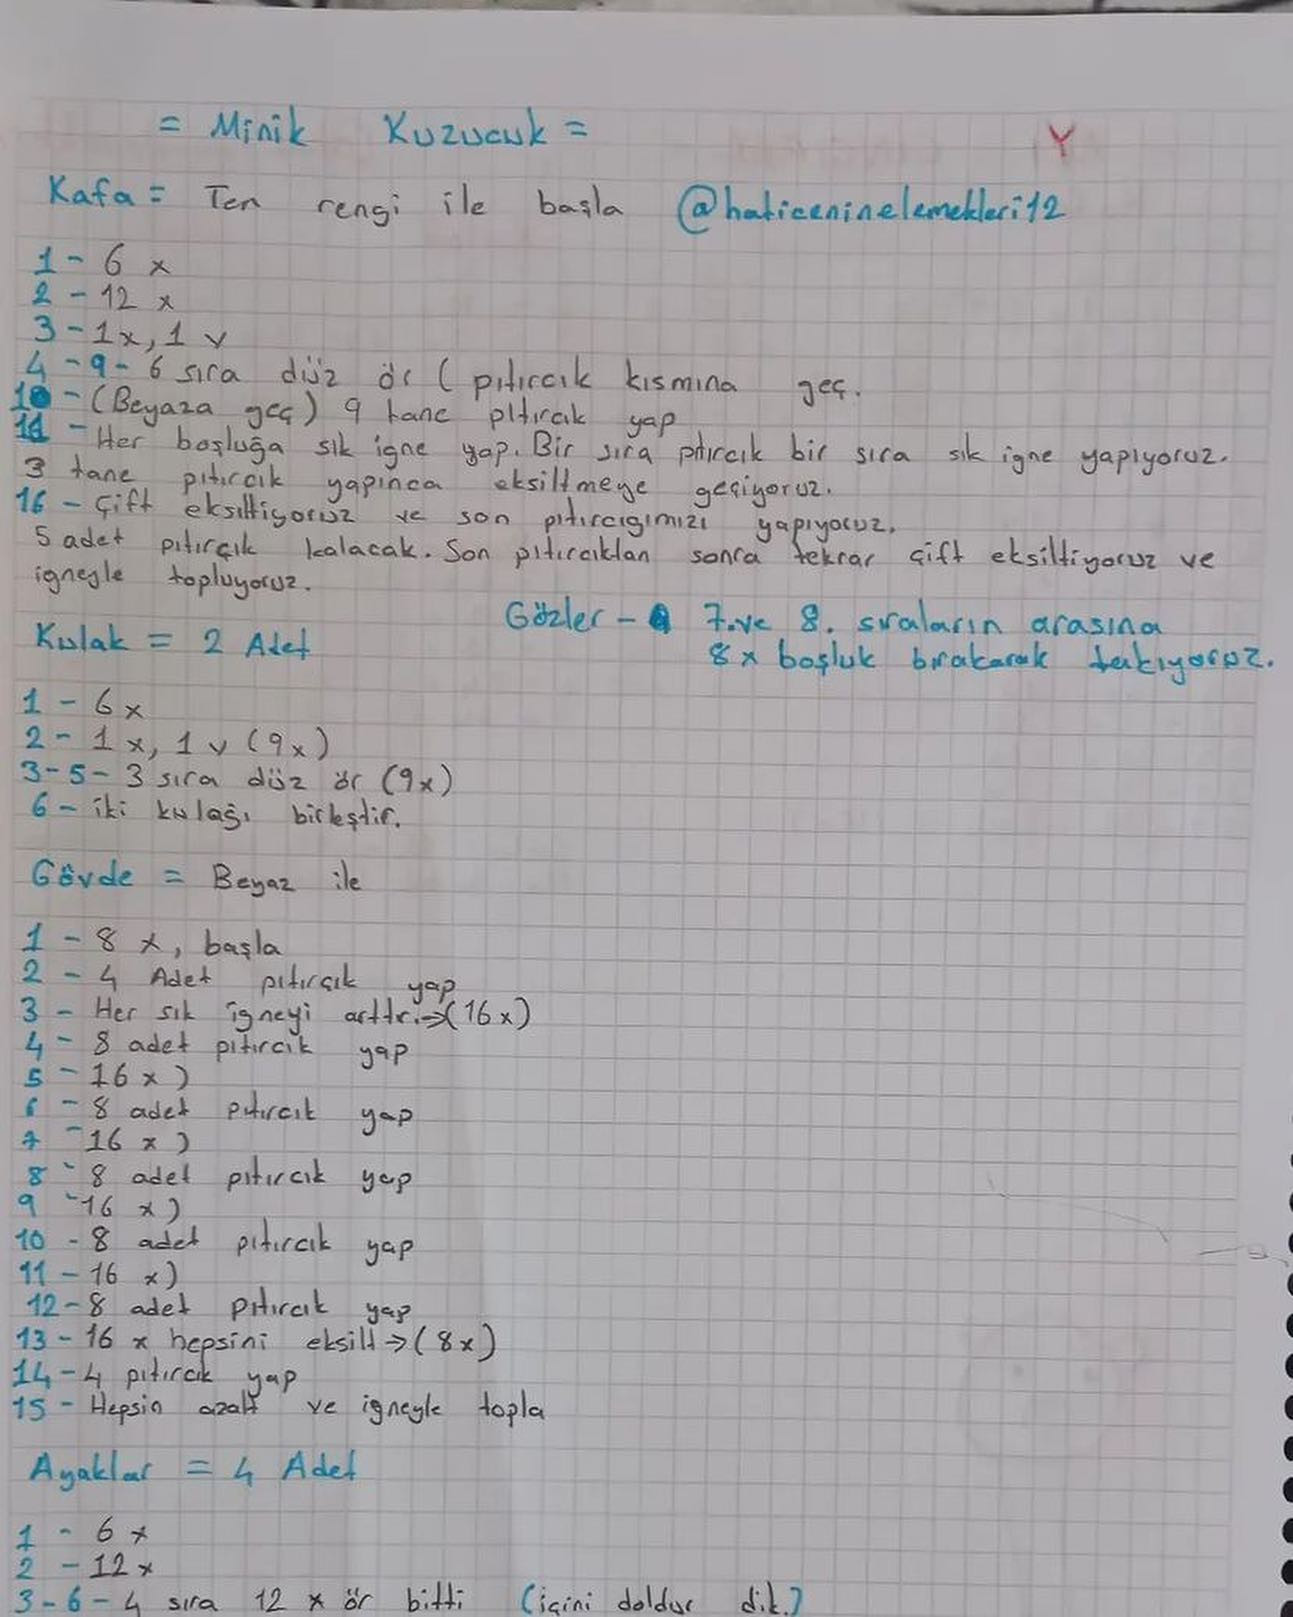 = Minik Kuzucuk =
Y
Kafa = Ten rengi ile başla @haticeninelemekleri12
1 - 6 x
2 - 12 x
3 - 1x, 1 v
4 - 9 - 6 sıra düz ör ( pıtırcık kısmına geç.
10 - (Beyaza geç) 9 tane pıtırcık yap
11 - Her boşluğa sık iğne yap. Bir sıra pıtırcık bir sıra sık iğne yapıyoruz.
3 tane pıtırcık yapınca eksiltmeye geçiyoruz.
16 - Çift eksiltiyoruz ve son pıtırcığımızı yapıyoruz.
5 adet pıtırçık kalacak. Son pıtırcıktan sonra tekrar çift eksiltiyoruz ve
igneyle topluyoruz.
Gözler - 7. ve 8. sıraların arasına
8 x boşluk bırakarak takıyoruz.
Kulak = 2 Adet
1 - 6 x
2 - 1 x, 1 v (9x)
3-5- 3 sıra düz ör (9x)
6 - iki kulağı birleştir.
Gövde = Beyaz ile
1 - 8 x, başla
2 - 4 Adet pıtırçık yap
3 - Her sık iğneyi arttır.→(16x)
4 - 8 adet pıtırcık yap
5 - 16 x )
6 - 8 adet pıtırcık yap
7 - 16 x )
8 - 8 adet pıtırcık yap
9 - 16 x )
10 - 8 adet pıtırcık yap
11 - 16 x )
12 - 8 adet pıtırcık yap
13 - 16 x hepsini eksilt → (8x)
14 - 4 pıtırcık yap
15 - Hepsin azalt ve iğneyle topla
Ayaklar = 4 Adet
1 - 6 x
2 - 12 x
3 - 6 - 4 sıra 12 x ör bitti (içini doldur dik.)